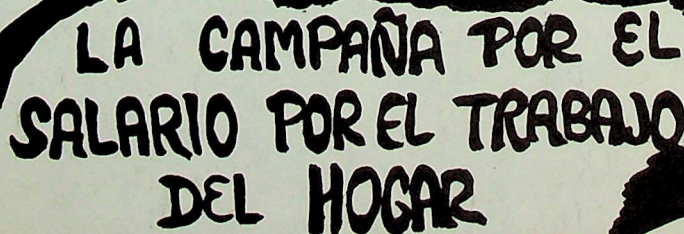 LA CAMPAÑA POR EL
SALARIO POR EL TRABAJO
DEL HOGAR